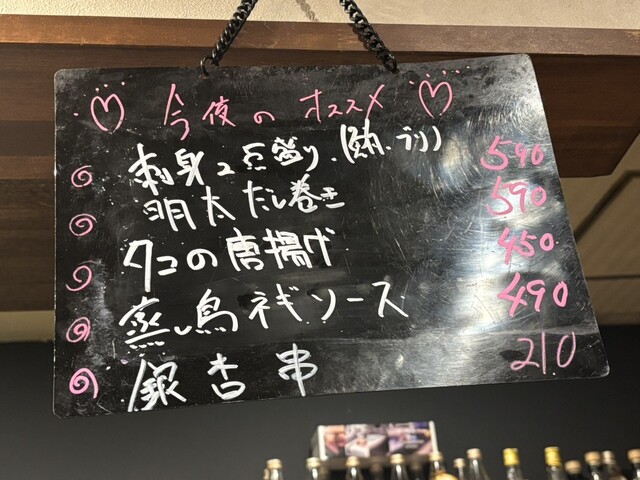 ♡ 今夜の オススメ ♡
刺身2点盛り.(鮪、ブリ) 590
明太だし巻き 590
タコの唐揚げ 450
蒸し鳥ネギソース 490
銀杏串 210